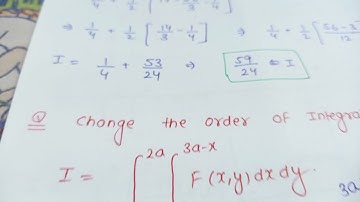 ⇒ 1/4 + 1/2 [ 14/3 - 1/4 ] ⇒ 1/4 + 1/2 [ 56-3/12
I = 1/4 + 53/24 ⇒ 59/24 = I
Q Change the order of Integra
I = ∫^2a ∫^3a-x F(x,y) dx dy.
3a